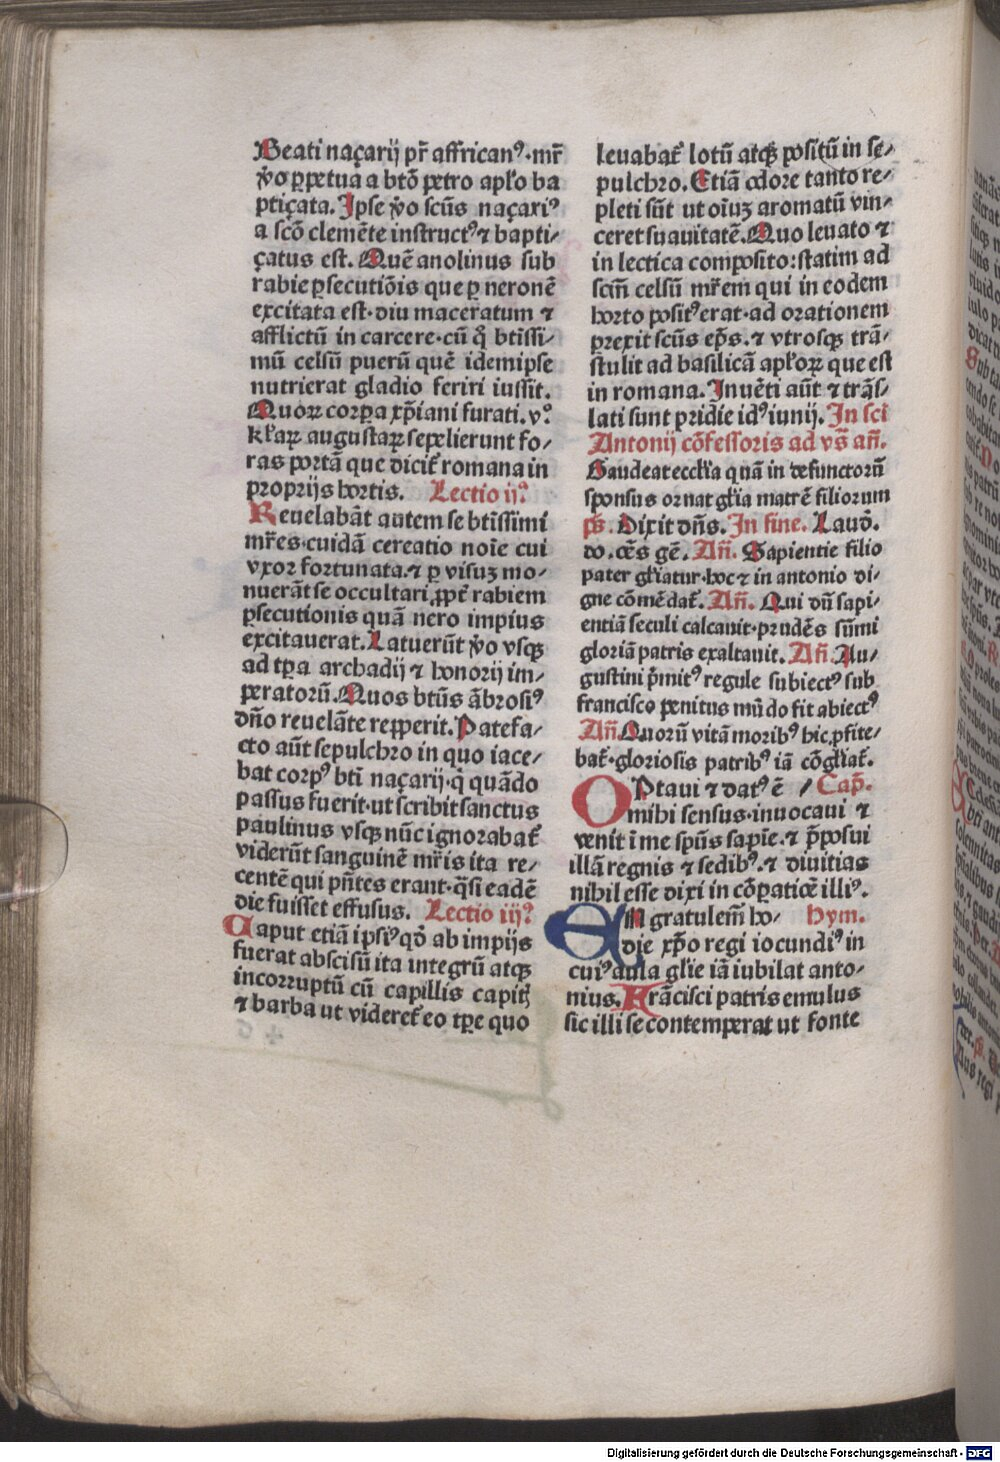 Beati naçarij pr̄ affricanꝰ·mr̄
v̓o ꝑpetua a btō petro apl̓o ba
ptiçata. Ipse v̓o scūs naçariꝰ
a scō clemēte instructꝰ ⁊ bapti⸗
çatus est. Quē anolinus sub
rabie ꝑsecutiōis que ꝑ neronē
excitata est·diu maceratum ⁊
afflictū in carcere·cū qͥ btissi⸗
mū celsū puerū quē idemipse
nutrierat gladio feriri iussit.
Quoꝝ corꝑa xp̄iani furati.v.ͦ
kl̓aꝝ augustaꝝ sepelierunt fo⸗
ras portā que dicit̄ romana in
proprijs hortis. Lectio ijͣ
Reuelabāt autem se btissimi
mr̄es·cuidā cereatio noīe cui
vxor fortunata.⁊ ꝑ visuȝ mo⸗
nuerāt se occultari ꝓpt̄ rabiem
ꝑsecutionis quā nero impius
excitauerat. Latuerūt v̓o vsqȝ
ad tꝑa archadij ⁊ honorij im⸗
peratorū. Quos btūs ābrosiꝰ
dn̄o reuelāte repperit. Patefa⸗
cto aūt sepulchro in quo iace⸗
bat corpꝰ bti̅ naçarij·q̄ quādo
passus fuerit·ut scribit sanctus
paulinus vsqȝ nūc ignorabat̄
viderūt sanguinē mr̄is ita re⸗
centē qui pn̄tes erant·q̄si eadē
die fuisset effusus. Lectio iijͣ
Caput etiā ipsiꝰ qō ab impijs
fuerat abscisū ita integrū atqȝ
incorruptū cū capillis capitꝭ
⁊ barba ut videret̄ eo tꝑe quo
leuabat̄ lotū atqȝ positū in se⸗
pulchro. Etiā odore tanto re⸗
pleti sūt ut oīuȝ aromatū vin⸗
ceret suauitatē. Quo leuato ⁊
in lectica composito:statim ad
scm̄ celsū mr̄em qui in eodem
horto positꝰ erat·ad orationem
ꝑrexit scūs ep̄s.⁊ vtrosqȝ trā⸗
stulit ad basilicā apl̓oꝝ que est
in romana. Inuēti aūt ⁊ trās⸗
lati sunt pridie idꝰ iunij. In sci
Antonij cōfessoris ad vs̄ an̄.
Gaudeat eccl̓ia quā in defunctorū
sponsus ornat gl̓ia matrē filiorum
ps̄. Dixit dn̄s. In fine. Laud̄.
do. oēs gē. An̄. Sapientie filio
pater gl̓iatur·hoc ⁊ in antonio di⸗
gne cōmēdat̄. An̄. Qui dū sapi⸗
entiā seculi calcauit·prudēs sūmi
gloriā patris exaltauit. An̄. Au⸗
gustini p̄mitꝰ regule subiectꝰ sub
francisco penitus mūdo fit abiectꝰ
An̄. Quorū vitā moribꝰ hic ꝓfite⸗
bat̄·gloriosis patribꝰ iā cōgl̓iat̄.
OPtaui ⁊ datꝰ ē / Cap̄.
mihi sensus·inuocaui ⁊
venit ī me spūs sapīe.⁊ p̄posui
illā regnis ⁊ sedibꝰ.⁊ diuitias
nihil esse dixi in cōꝑatiōe illiꝰ.
EN gratulem̄ ho⸗ Hym.
die xp̄o regi iocundiꝰ in
cuiꝰ aula gl̓ie iā iubilat anto⸗
nius. Frācisci patris emulus
sic illi se contemperat ut fonte
Digitalisierung gefördert durch die Deutsche Forschungsgemeinschaft - DFG